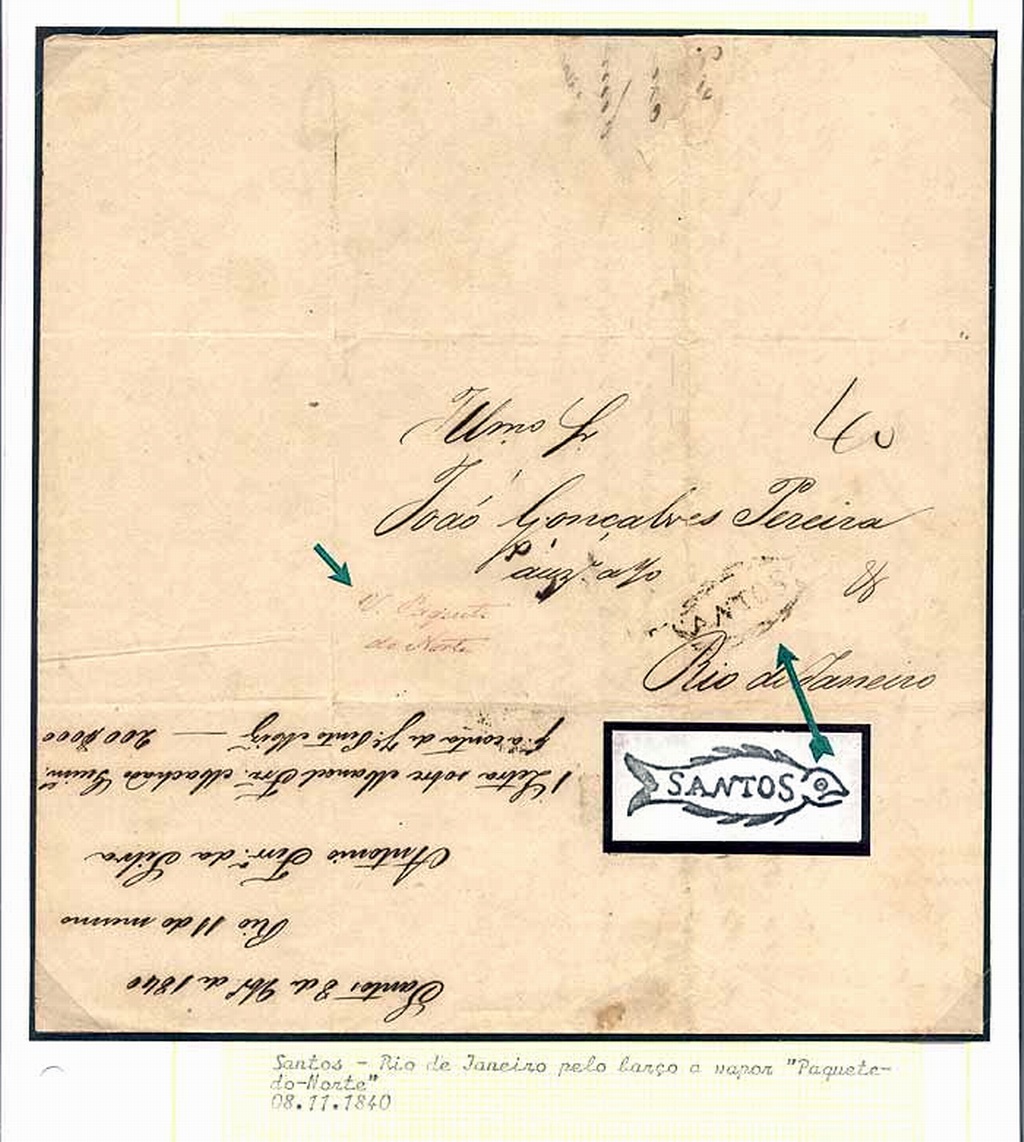 Illmo Sr.
40
João Gonçalves Pereira
V. Paquete
do Norte
SANTOS
Rio de Janeiro
SANTOS
Santos 8 de 9br de 1840
Rio 11 do mesmo
Antonio Ferr.ª da Silva
1 Letra sobre Manoel Frr. Machado Guim.
p.ª conta de J.e Pinto 200$000
Santos - Rio de Janeiro pelo barço a vapor "Paquete-
do-Norte"
08.11.1840